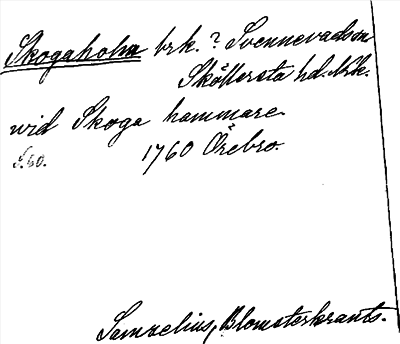 Skogaholm brk.? Svennevadssn
Sköllersta hd. Nrk.
wid Skoga hammare
S. 60. 1760 Örebro.
Samzelius, Blomsterkrants.